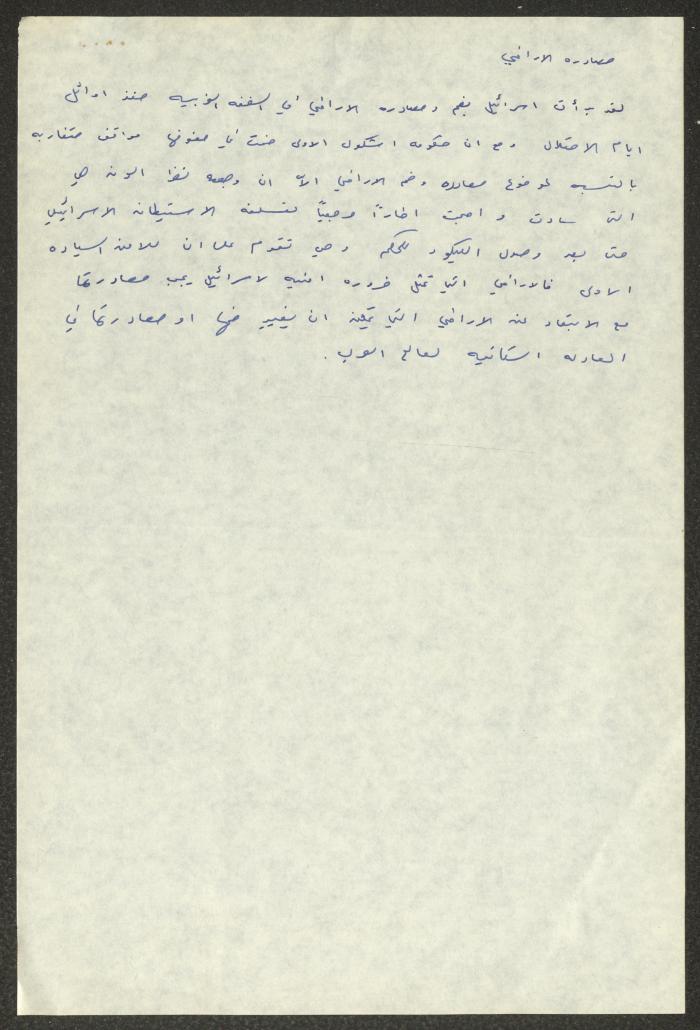 مصادره الاراضي
لقد بدأت اسرائيل بضم ومصادره الاراضي في الضفه الغربيه منذ اوائل
ايام الاحتلال ومع ان حكومه اشكول الاولى ضمت في صفوفها مواقف متقاربه
بالنسبه لموضوع مصادره وضم الاراضي الا ان وجهه نظر الون هي
التي سادت و اصبحت اطاراً مرجعياً لفلسفه الاستيطان الاسرائيلي
حتى بعد وصول الليكود للحكم وهي تقوم على ان للامن السياده
الاولى فالاراضي التي تمثل ضروره امنيه لاسرائيل يجب مصادرتها
مع الابتعاد عن الاراضي التي يمكن ان يغير ضمها او مصادرتها في
المعادله السكانيه لصالح العرب .